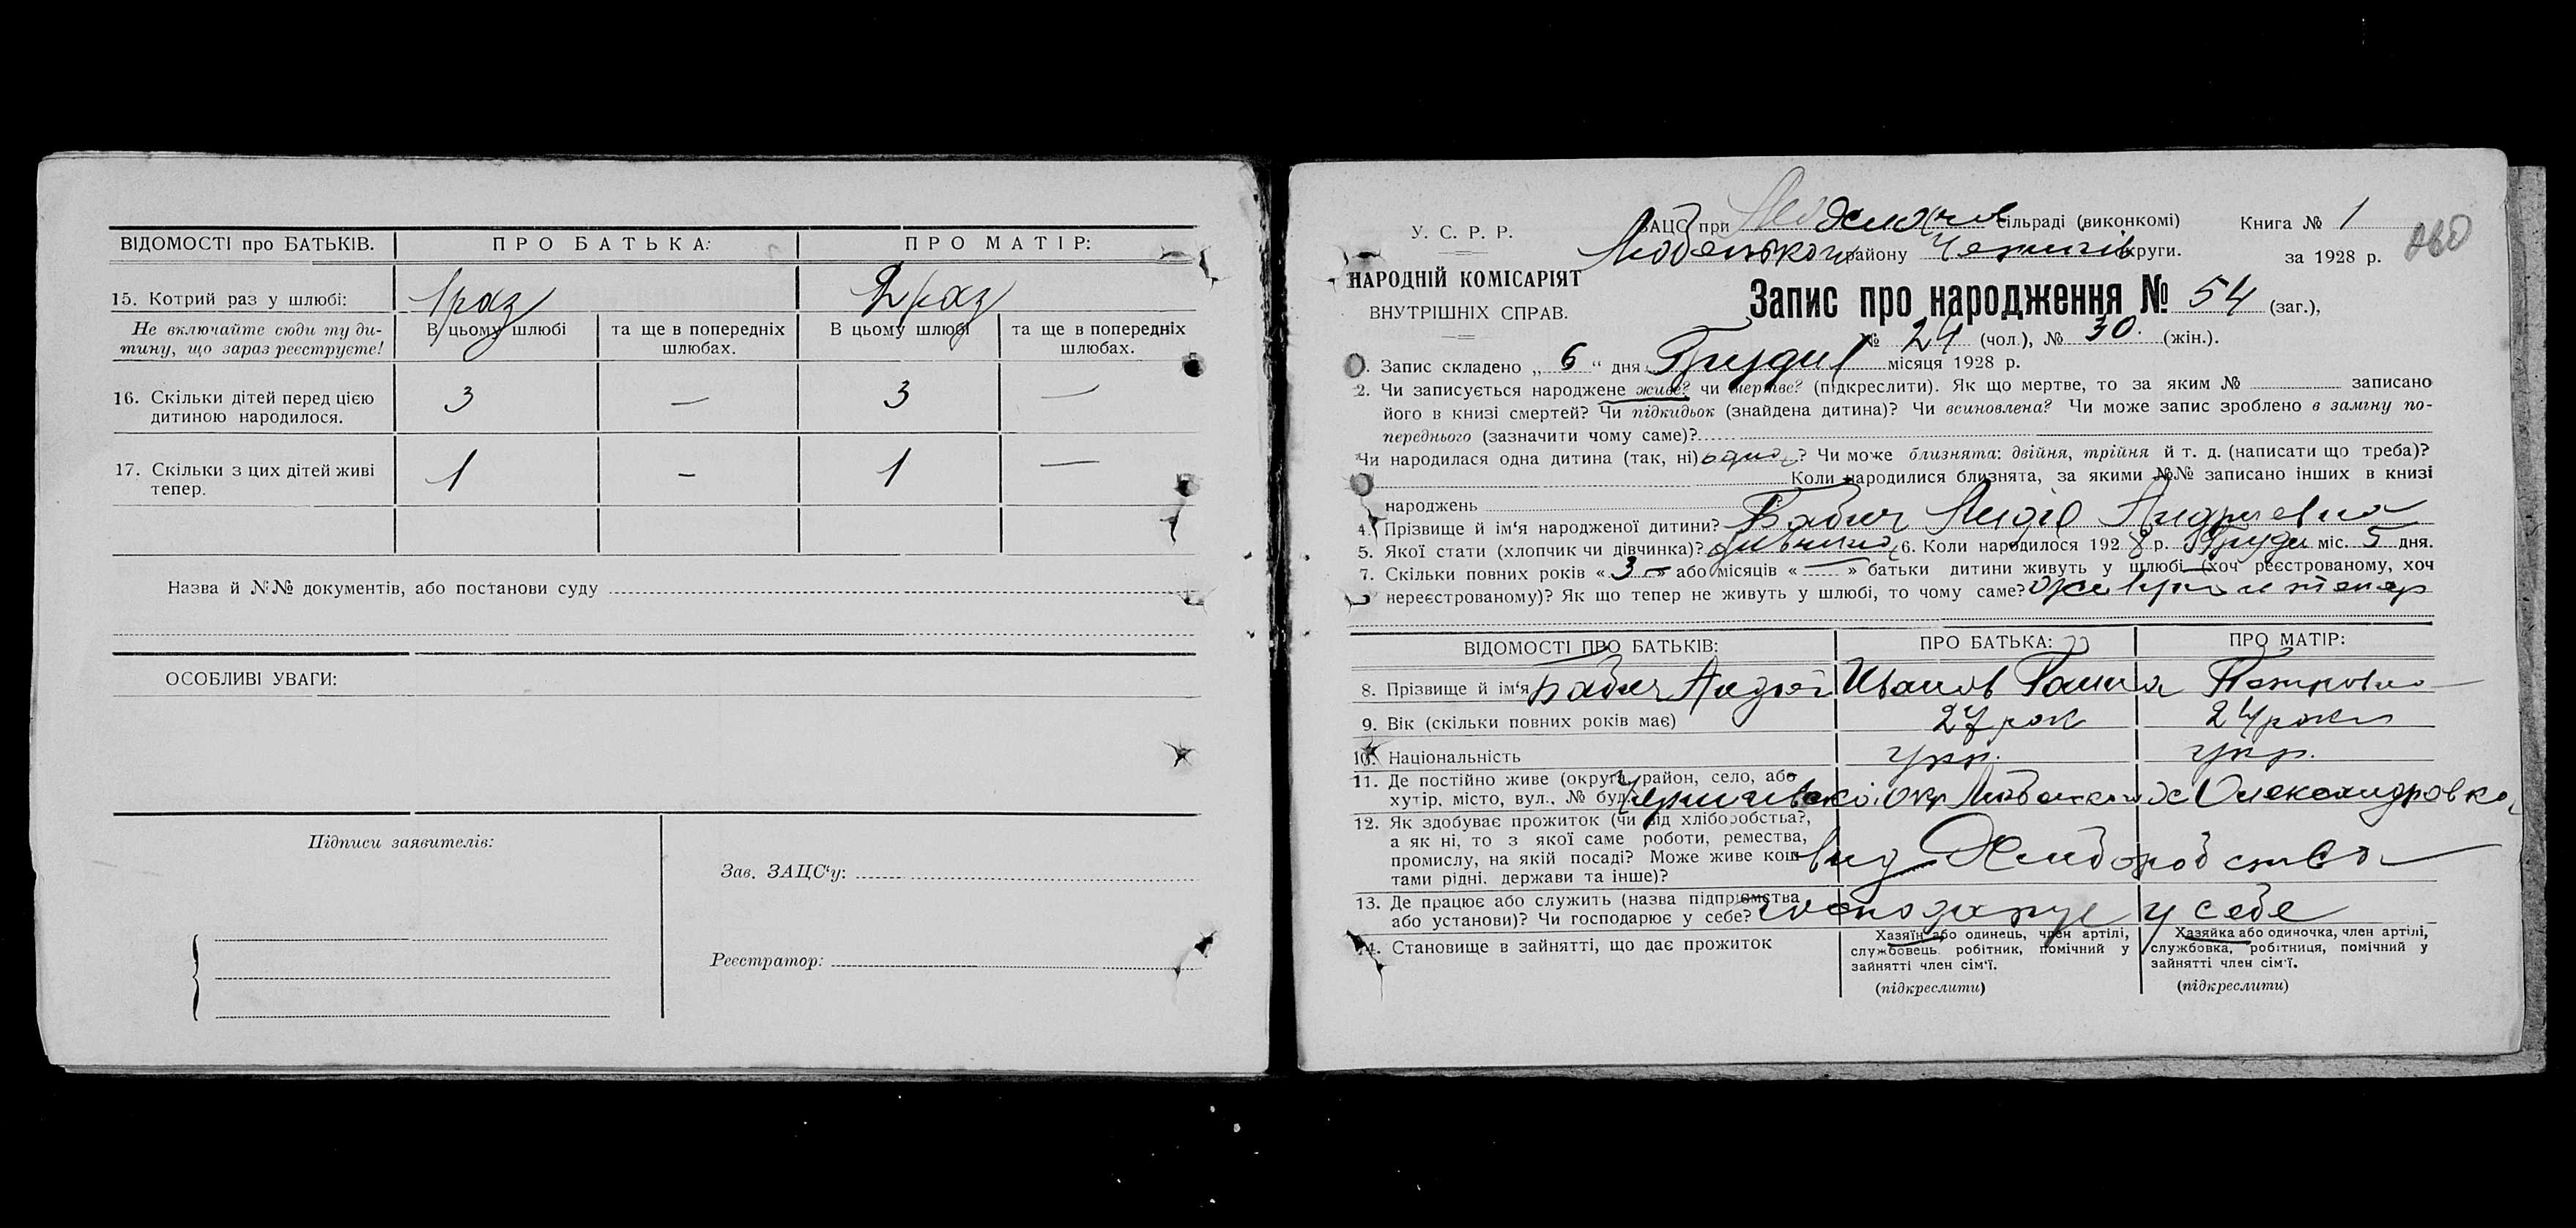 ВІДОМОСТІ про БАТЬКІВ. ПРО БАТЬКА: ПРО МАТІР:
15. Котрий раз у шлюбі: 1 раз 2 раз
Не включайте сюди ту ди- В цьому шлюбі та ще в попередніх В цьому шлюбі та ще в попередніх
тину, що зараз реєструєте! шлюбах. шлюбах.
16. Скільки дітей перед цією 3 — 3 —
дитиною народилося.
17. Скільки з цих дітей живі 1 — 1 —
тепер.
Назва й №№ документів, або постанови суду
ОСОБЛИВІ УВАГИ:
Підписи заявителів:
Зав. ЗАЦС'у:
Реєстратор:
У. С. Р. Р.
НАРОДНІЙ КОМІСАРІЯТ
ВНУТРІШНІХ СПРАВ.
ЗАЦС при сільраді (виконкомі) Книга № 1
Любецького району Черниг округи. за 1928 р.
Запис про народження № 54 (заг.),
№ 24 (чол.), № 30. (жін.).
1. Запис складено „ 6 “ дня Грудня місяця 1928 р.
2. Чи записується народжене живе? чи мертве? (підкреслити). Як що мертве, то за яким № записано
його в книзі смертей? Чи підкидьок (знайдена дитина)? Чи всиновлена? Чи може запис зроблено в заміну по-
переднього (зазначити чому саме)?
Чи народилася одна дитина (так, ні) одна ? Чи може близнята: двійня, трійня й т. д. (написати що треба)?
Коли народилися близнята, за якими №№ записано інших в книзі
народжень
4. Прізвище й ім'я народженої дитини? Бабич Лидія Андриевна
5. Якої стати (хлопчик чи дівчинка)? дивчина 6. Коли народилося 1928 р. Грудн міс. 5 дня.
7. Скільки повних років « 3 » або місяців « — » батьки дитини живуть у шлюбі (хоч реєстрованому, хоч
нереєстрованому)? Як що тепер не живуть у шлюбі, то чому саме? и тепер
ВІДОМОСТІ ПРО БАТЬКІВ: ПРО БАТЬКА: ПРО МАТІР:
8. Прізвище й ім'я Бабич Андрей Иванов Ганна Петровна
9. Вік (скільки повних років має) 27 рок 24 роки
10. Національність укр. укр.
11. Де постійно живе (округа, район, село, або
хутір, місто, вул., № буд. Черниговской окр Любецкого х Олександровка
12. Як здобуває прожиток (чи від хліборобства?,
а як ні, то з якої саме роботи, ремества,
промислу, на якій посаді? Може живе кош- вид Хлиборобства
тами рідні, держави та інше)?
13. Де працює або служить (назва підприємства
або установи)? Чи господарює у себе? господарує у себе
14. Становище в зайнятті, що дає прожиток
Хазяїн або одинець, член артілі, Хазяйка або одиночка, член артілі,
службовець, робітник, помічний у службовка, робітниця, помічний у
зайнятті член сім'ї. зайнятті член сім'ї.
(підкреслити) (підкреслити)